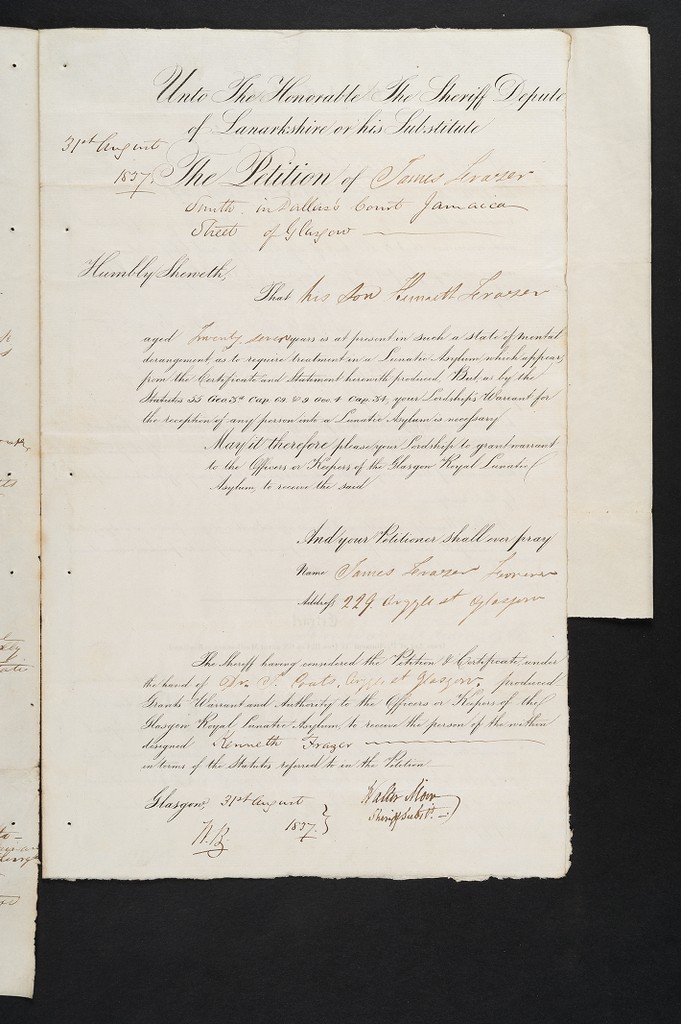 Unto The Honorable The Sheriff Depute
of Lanarkshire or his Substitute
31st August
1837.
The Petition of James Frazer
Smith in Dallas's Court Jamaica
Street of Glasgow
Humbly Sheweth,
That his son Kenneth Frazer
aged Twenty seven years is at present in such a state of mental
derangement, as to require treatment in a Lunatic Asylum which appears
from the Certificate and Statement herewith produced, But, as by the
Statutes 55 Geo. 3d Cap. 69. & 9 Geo. 4 Cap. 34, your Lordship's Warrant for
the reception of any person into a Lunatic Asylum is necessary
May it therefore please your Lordship to grant warrant
to the Officers or Keepers of the Glasgow Royal Lunatic
Asylum, to receive the said
And your Petitioner shall ever pray
Name James Frazer
Address 229 Argyle st Glasgow
The Sheriff having considered the Petition & Certificate, under
the hand of Dr. Coats, Argyle st Glasgow. produced
Grants Warrant and Authority to the Officers or Keepers of the
Glasgow Royal Lunatic Asylum, to receive the person of the within
designed Kenneth Frazer
in terms of the Statutes referred to in the Petition
Glasgow, 31st August
1837.
Walter Moir
Sheriff Subst.
N.B.